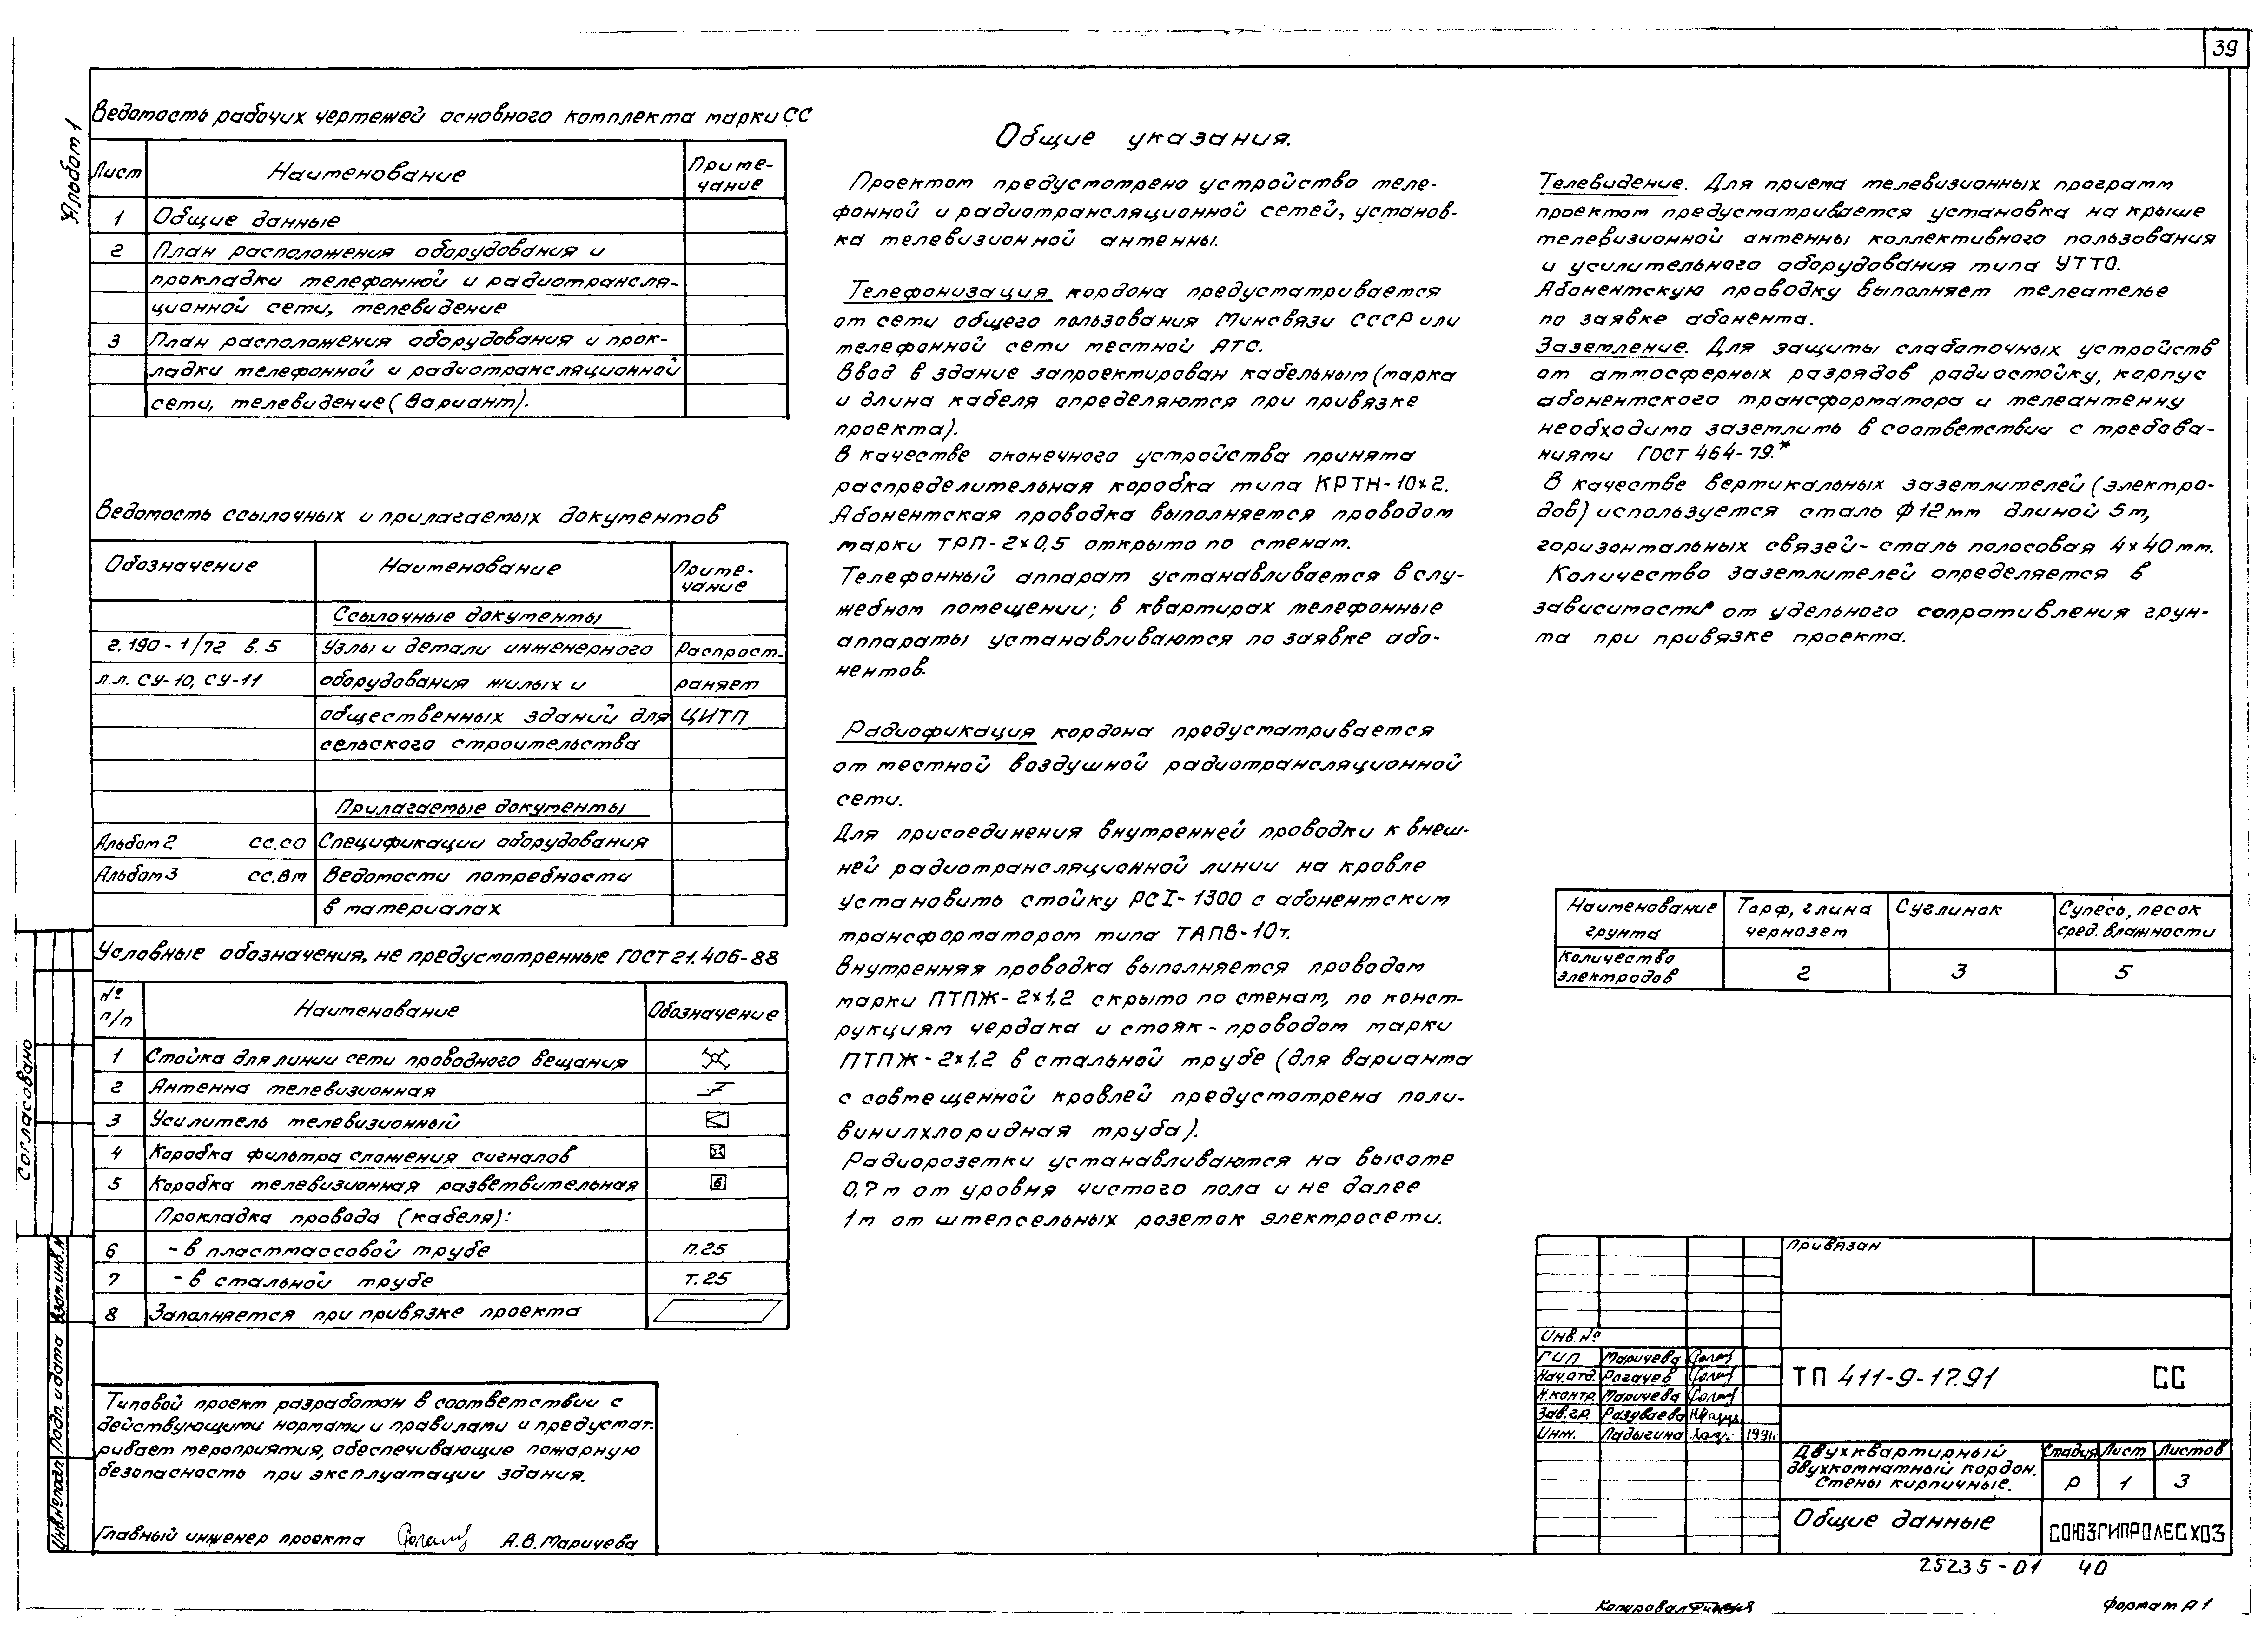 39
Альбом 1
Ведомость рабочих чертежей основного комплекта марки СС
Лист Наименование Приме-
чание
1 Общие данные
2 План расположения оборудования и
прокладки телефонной и радиотрансля-
ционной сети, телевидение
3 План расположения оборудования и прок-
ладки телефонной и радиотрансляционной
сети, телевидение (вариант).
Ведомость ссылочных и прилагаемых документов
Обозначение Наименование Приме-
чание
Ссылочные документы
2.190-1/72 в.5 Узлы и детали инженерного Распрост-
л.л. СУ-10, СУ-11 оборудования жилых и раняет
общественных зданий для ЦИТП
сельского строительства
Прилагаемые документы
Альбом 2 СС.СО Спецификации оборудования
Альбом 3 СС.ВМ Ведомости потребности
в материалах
Условные обозначения, не предусмотренные ГОСТ 21.406-88
№
п/п Наименование Обозначение
1 Стойка для линии сети проводного вещания
2 Антенна телевизионная
3 Усилитель телевизионный
4 Коробка фильтра сложения сигналов
5 Коробка телевизионная разветвительная
Прокладка провода (кабеля):
6 - в пластмассовой трубе п.25
7 - в стальной трубе т.25
8 Заполняется при привязке проекта
Типовой проект разработан в соответствии с
действующими нормами и правилами и предусмат-
ривает мероприятия, обеспечивающие пожарную
безопасность при эксплуатации здания.
Главный инженер проекта А.В. Маричева
Общие указания.
Проектом предусмотрено устройство теле-
фонной и радиотрансляционной сетей, установ-
ка телевизионной антенны.
Телефонизация кордона предусматривается
от сети общего пользования Минсвязи СССР или
телефонной сети местной АТС.
Ввод в здание запроектирован кабельным (марка
и длина кабеля определяются при привязке
проекта).
В качестве оконечного устройства принята
распределительная коробка типа КРТН-10×2.
Абонентская проводка выполняется проводом
марки ТРП-2×0,5 открыто по стенам.
Телефонный аппарат устанавливается в слу-
жебном помещении; в квартирах телефонные
аппараты устанавливаются по заявке або-
нентов.
Радиофикация кордона предусматривается
от местной воздушной радиотрансляционной
сети.
Для присоединения внутренней проводки к внеш-
ней радиотрансляционной линии на кровле
установить стойку РСI-1300 с абонентским
трансформатором типа ТАПВ-10т.
Внутренняя проводка выполняется проводом
марки ПТПЖ-2×1,2 скрыто по стенам, по конст-
рукциям чердака и стояк-проводом марки
ПТПЖ-2×1,2 в стальной трубе (для варианта
с совмещенной кровлей предусмотрена поли-
винилхлоридная труба).
Радиорозетки устанавливаются на высоте
0,7м от уровня чистого пола и не далее
1м от штепсельных розеток электросети.
Телевидение. Для приема телевизионных программ
проектом предусматривается установка на крыше
телевизионной антенны коллективного пользования
и усилительного оборудования типа УТТО.
Абонентскую проводку выполняет телеателье
по заявке абонента.
Заземление. Для защиты слаботочных устройств
от атмосферных разрядов радиостойку, корпус
абонентского трансформатора и телеантенну
необходимо заземлить в соответствии с требова-
ниями ГОСТ 464-79.*
В качестве вертикальных заземлителей (электро-
дов) используется сталь Ф12мм длиной 5м,
горизонтальных связей - сталь полосовая 4×40мм.
Количество заземлителей определяется в
зависимости от удельного сопротивления грун-
та при привязке проекта.
Наименование
грунта Торф, глина
чернозем Суглинок Супесь, песок
сред. влажности
Количество
электродов 2 3 5
Привязан
Инв.№
ГИП Маричева
Нач.отд. Рогачев
Н.контр. Маричева
Зав.гр. Разуваева
Инж. Ладыгина 1991
ТП 411-9-17.91 СС
Двухквартирный
двухкомнатный кордон.
Стены кирпичные.
Стадия Лист Листов
Р 1 3
Общие данные
СОЮЗГИПРОЛЕСХОЗ
25235-01 40
Копировал
Формат А1
Согласовано
Взам.инв.№
Подп. и дата
Инв.№подл.